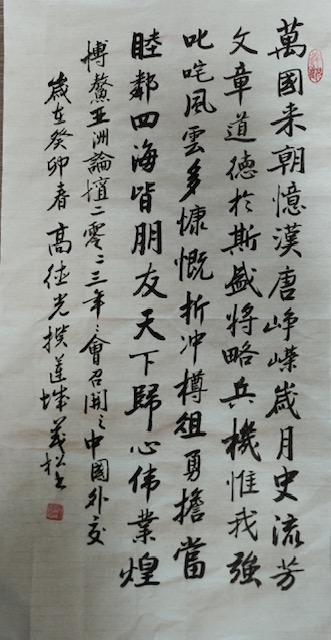 萬國来朝憶漢唐峥嵘歲月史流芳
文章道德於斯盛將略兵機惟我強
叱咤風雲多慷慨折冲樽俎勇擔當
睦鄰四海皆朋友天下歸心伟業煌
博鰲亚洲論壇二零二三年年會召開之中國外交
歲在癸卯春高德光撰蓮城義松书